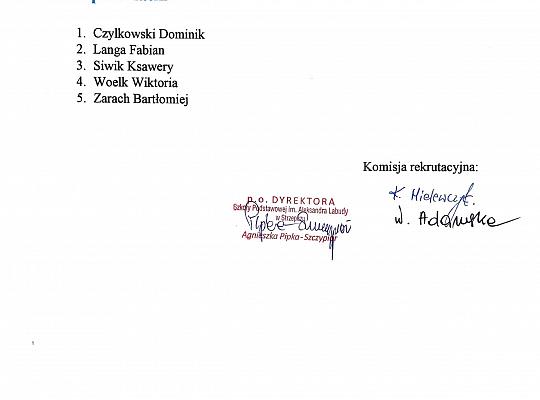 1. Czylkowski Dominik
2. Langa Fabian
3. Siwik Ksawery
4. Woelk Wiktoria
5. Zarach Bartłomiej
Komisja rekrutacyjna:
K. Mielewczyk.
W. Adamska
p.o. DYREKTORA
Szkoły Podstawowej im. Aleksandra Labudy
w Strzepczu
Pipka-Szczypior
Agnieszka Pipka-Szczypior